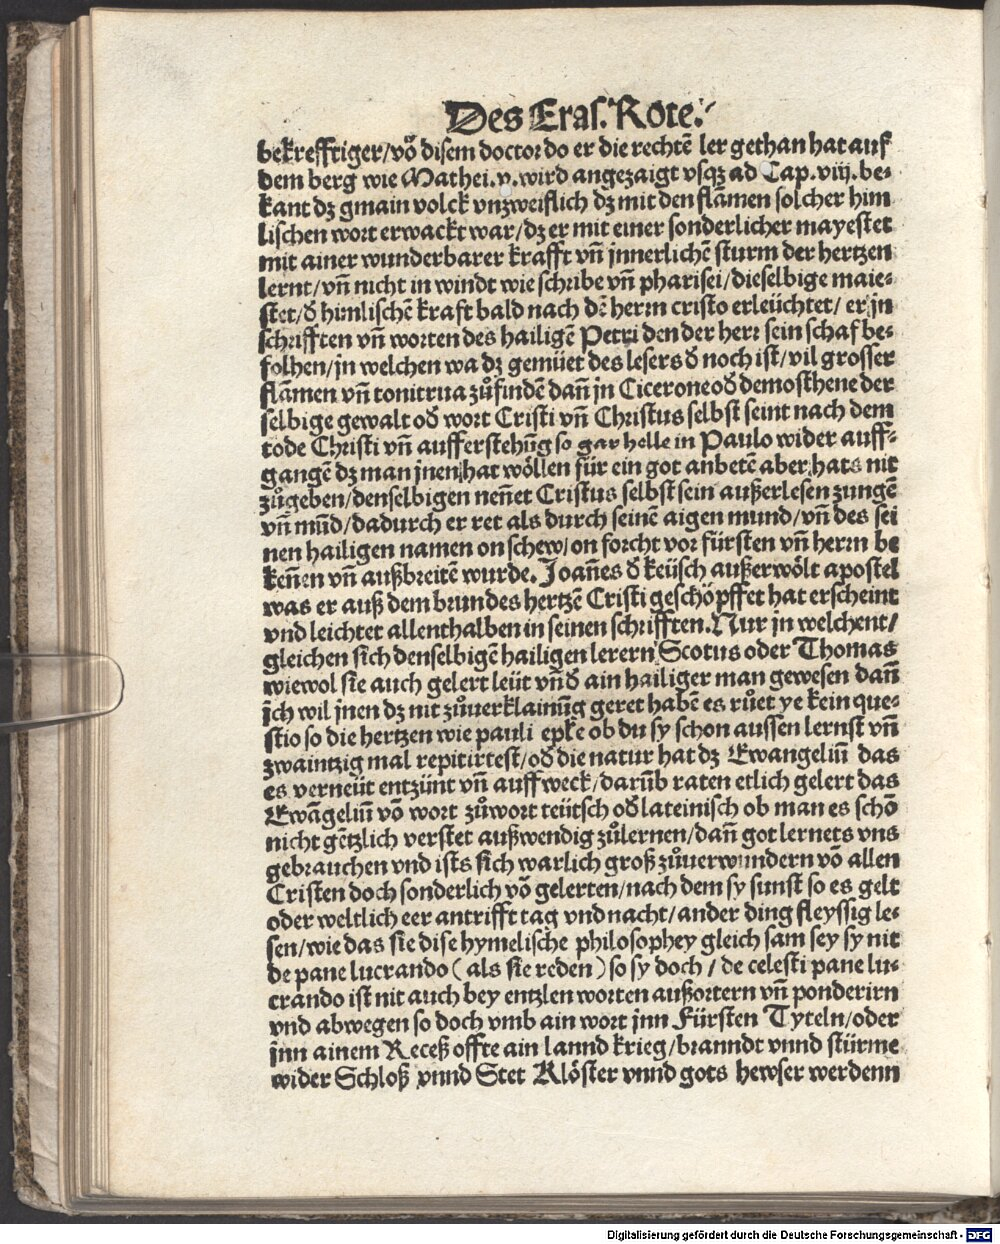 Des Eras. Rote.
bekrefftiger/vō disem doctor do er die rechtē ler gethan hat auf
dem berg wie Mathei. v. wird angezaigt vsqꝫ ad Cap. viij. be-
kant dz gmain volck vnzweiflich dz mit den flāmen solcher him
lischen wort erwackt war/dz er mit einer sonderlicher mayestet
mit ainer wunderbarer krafft vñ jnnerlichē sturm der hertzen
lernt/vñ nicht in windt wie schribe vñ pharisei/dieselbige maie-
stet/δ himlischē kraft bald nach dē herrn cristo erleüchtet/er jn
schrifften vñ worten des hailigē Petri den der herr sein schaf be-
folhen/jn welchen wa dz gemüet des lesers δ noch ist/vil grosser
flāmen vñ tonitrua zůfindē dañ jn Cicerone oδ demosthene der
selbige gewalt oδ wort Cristi vñ Christus selbst seint nach dem
tode Christi vñ aufferstehūg so gar helle in Paulo wider auff-
gangē dz man jnen hat wöllen für ein got anbetē aber hats nit
zůgeben/denselbigen neñet Cristus selbst sein außerlesen zungē
vñ mūd/dadurch er ret als durch seinē aigen mund/vñ des sei
nen hailigen namen on schew/on forcht vor fürsten vñ herrn be
keñen vñ außbreitē wurde. Joañes δ keüsch außerwölt apostel
was er auß dem brun des hertzē Cristi geschöpffet hat erscheint
vnd leichtet allenthalben in seinen schrifften. Nur jn welchent/
gleichen sich denselbigē hailigen lerern Scotus oder Thomas
wiewol sie auch gelert leüt vñ δ ain hailiger man gewesen dañ
jch wil jnen dz nit zůuerklainūg geret habē es růet ye kein que-
stio so die hertzen wie pauli epl̄e ob du sy schon aussen lernst vñ
zwaintzig mal repitirtest/oδ die natur hat dz Ewangeliū das
es verneüt entzünt vñ auff weck/darūb raten etlich gelert das
Ewāgeliū vō wort zůwort teütsch oδ lateinisch ob man es schō
nicht gētzlich verstet außwendig zůlernen/dañ got lernets vns
gebrauchen vnd ists sich warlich groß zůuerwundern vō allen
Cristen doch sonderlich vō gelerten/nach dem sy sunst so es gelt
oder weltlich eer antrifft tag vnd nacht/ander ding fleyssig le-
sen/wie das sie dise hymelische philosophey gleich sam sey sy nit
de pane lucrando (als sie reden) so sy doch/de celesti pane lu-
crando ist nit auch bey entzlen worten außortern vñ ponderirn
vnd abwegen so doch vmb ain wort jnn Fürsten Tyteln/oder
jnn ainem Receß offte ain lannd krieg/branndt vnnd stürme
wider Schloß vnnd Stet Klöster vnnd gots hewser werdenn
Digitalisierung gefördert durch die Deutsche Forschungsgemeinschaft - DFG